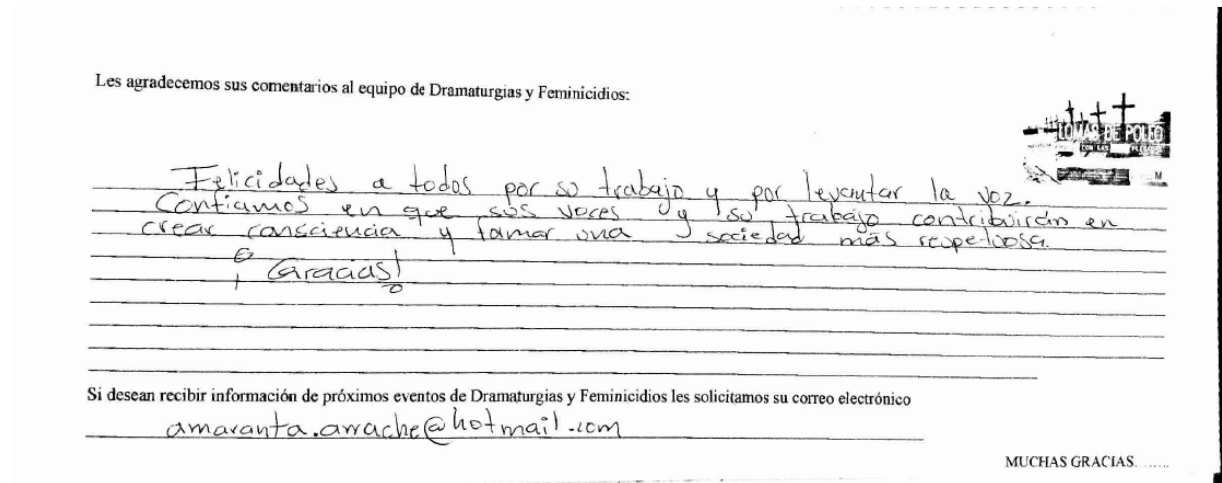 Les agradecemos sus comentarios al equipo de Dramaturgias y Feminicidios:
LOMAS DE POLEO
Felicidades a todos por su trabajo y por levantar la voz.
Confiamos en que sus voces y su trabajo contribuirán en
crear consciencia y tomar una sociedad más respetuosa.
¡Gracias!
Si desean recibir información de próximos eventos de Dramaturgias y Feminicidios les solicitamos su correo electrónico
amaranta.arrache@hotmail.com
MUCHAS GRACIAS.......